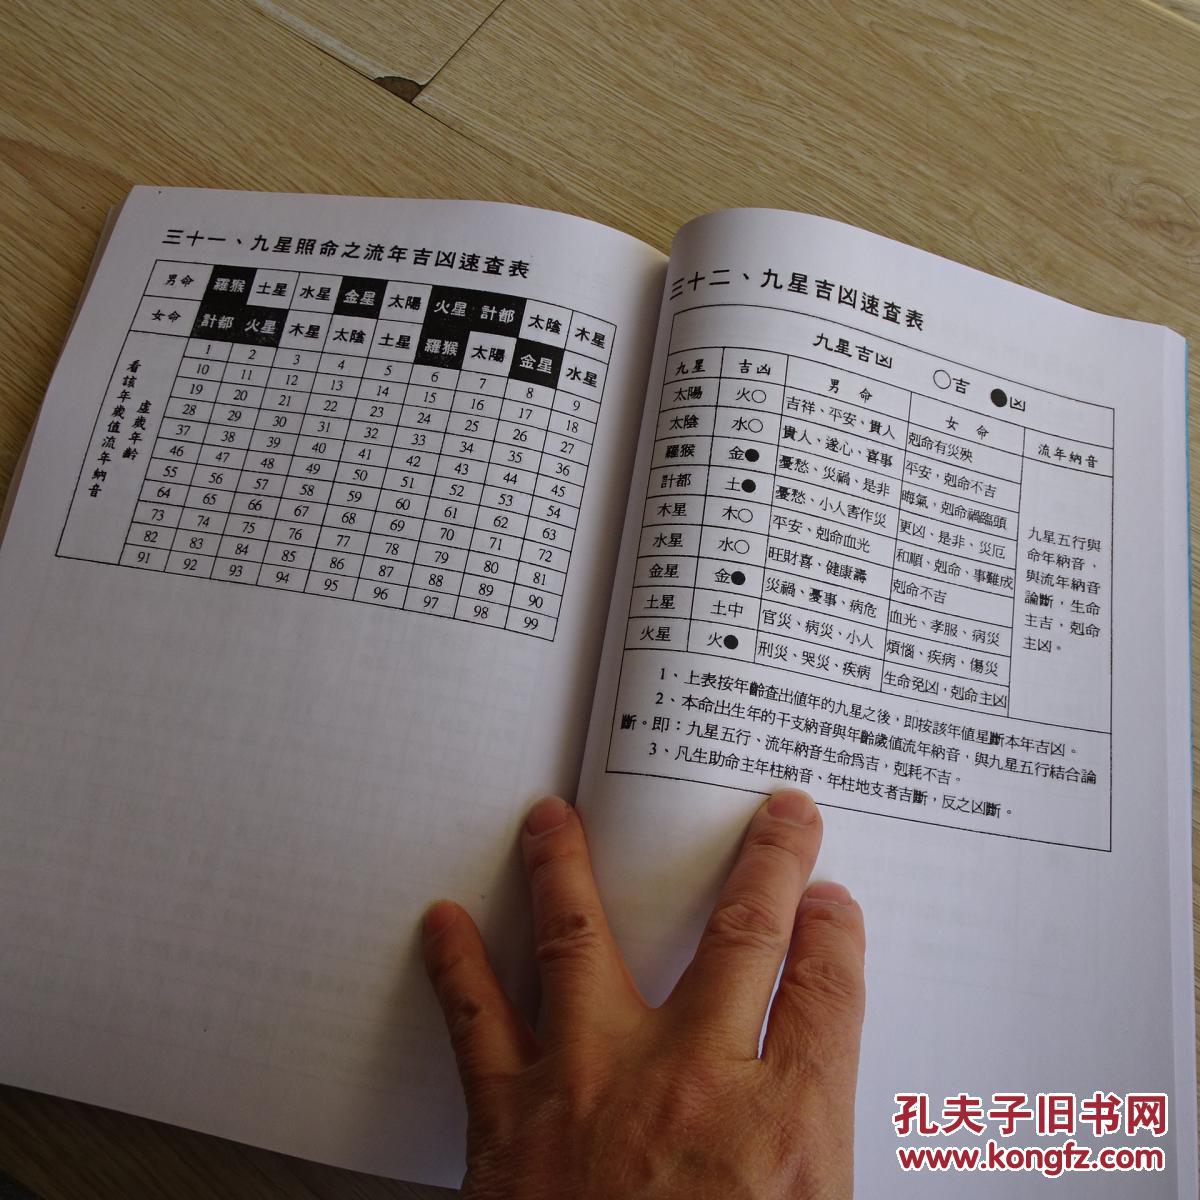 三十一、九星照命之流年吉凶速查表
男命 羅猴 土星 水星 金星 太陽 火星 計都 太陰 木星
女命 計都 火星 木星 太陰 土星 羅猴 太陽 金星 水星
虛歲年齡
看該年歲值流年納音
1 2 3 4 5 6 7 8 9
10 11 12 13 14 15 16 17 18
19 20 21 22 23 24 25 26 27
28 29 30 31 32 33 34 35 36
37 38 39 40 41 42 43 44 45
46 47 48 49 50 51 52 53 54
55 56 57 58 59 60 61 62 63
64 65 66 67 68 69 70 71 72
73 74 75 76 77 78 79 80 81
82 83 84 85 86 87 88 89 90
91 92 93 94 95 96 97 98 99
三十二、九星吉凶速查表
九星吉凶 ○吉 ●凶
九星 吉凶 男命 女命 流年納音
太陽 火○ 吉祥、平安、貴人 剋命有災殃
太陰 水○ 貴人、遂心、喜事 平安，剋命不吉
羅猴 金● 憂愁、災禍、是非 晦氣，剋命禍臨頭
計都 土● 憂愁、小人害作災 更凶、是非、災厄
木星 木○ 平安、剋命血光 和順、剋命、事難成
水星 水○ 旺財喜、健康壽 剋命不吉
金星 金● 災禍、憂事、病危 血光、孝服、病災
土星 土中 官災、病災、小人 煩惱、疾病、傷災
火星 火● 刑災、哭災、疾病 生命免凶，剋命主凶
九星五行與
命年納音、
與流年納音
論斷，生命
主吉，剋命
主凶。
1、上表按年齡查出值年的九星之後，即按該年值星斷本年吉凶。
2、本命出生年的干支納音與年齡歲值流年納音，與九星五行結合論
斷。即：九星五行、流年納音生命爲吉，剋耗不吉。
3、凡生助命主年柱納音、年柱地支者吉斷，反之凶斷。
孔夫子旧书网
www.kongfz.com